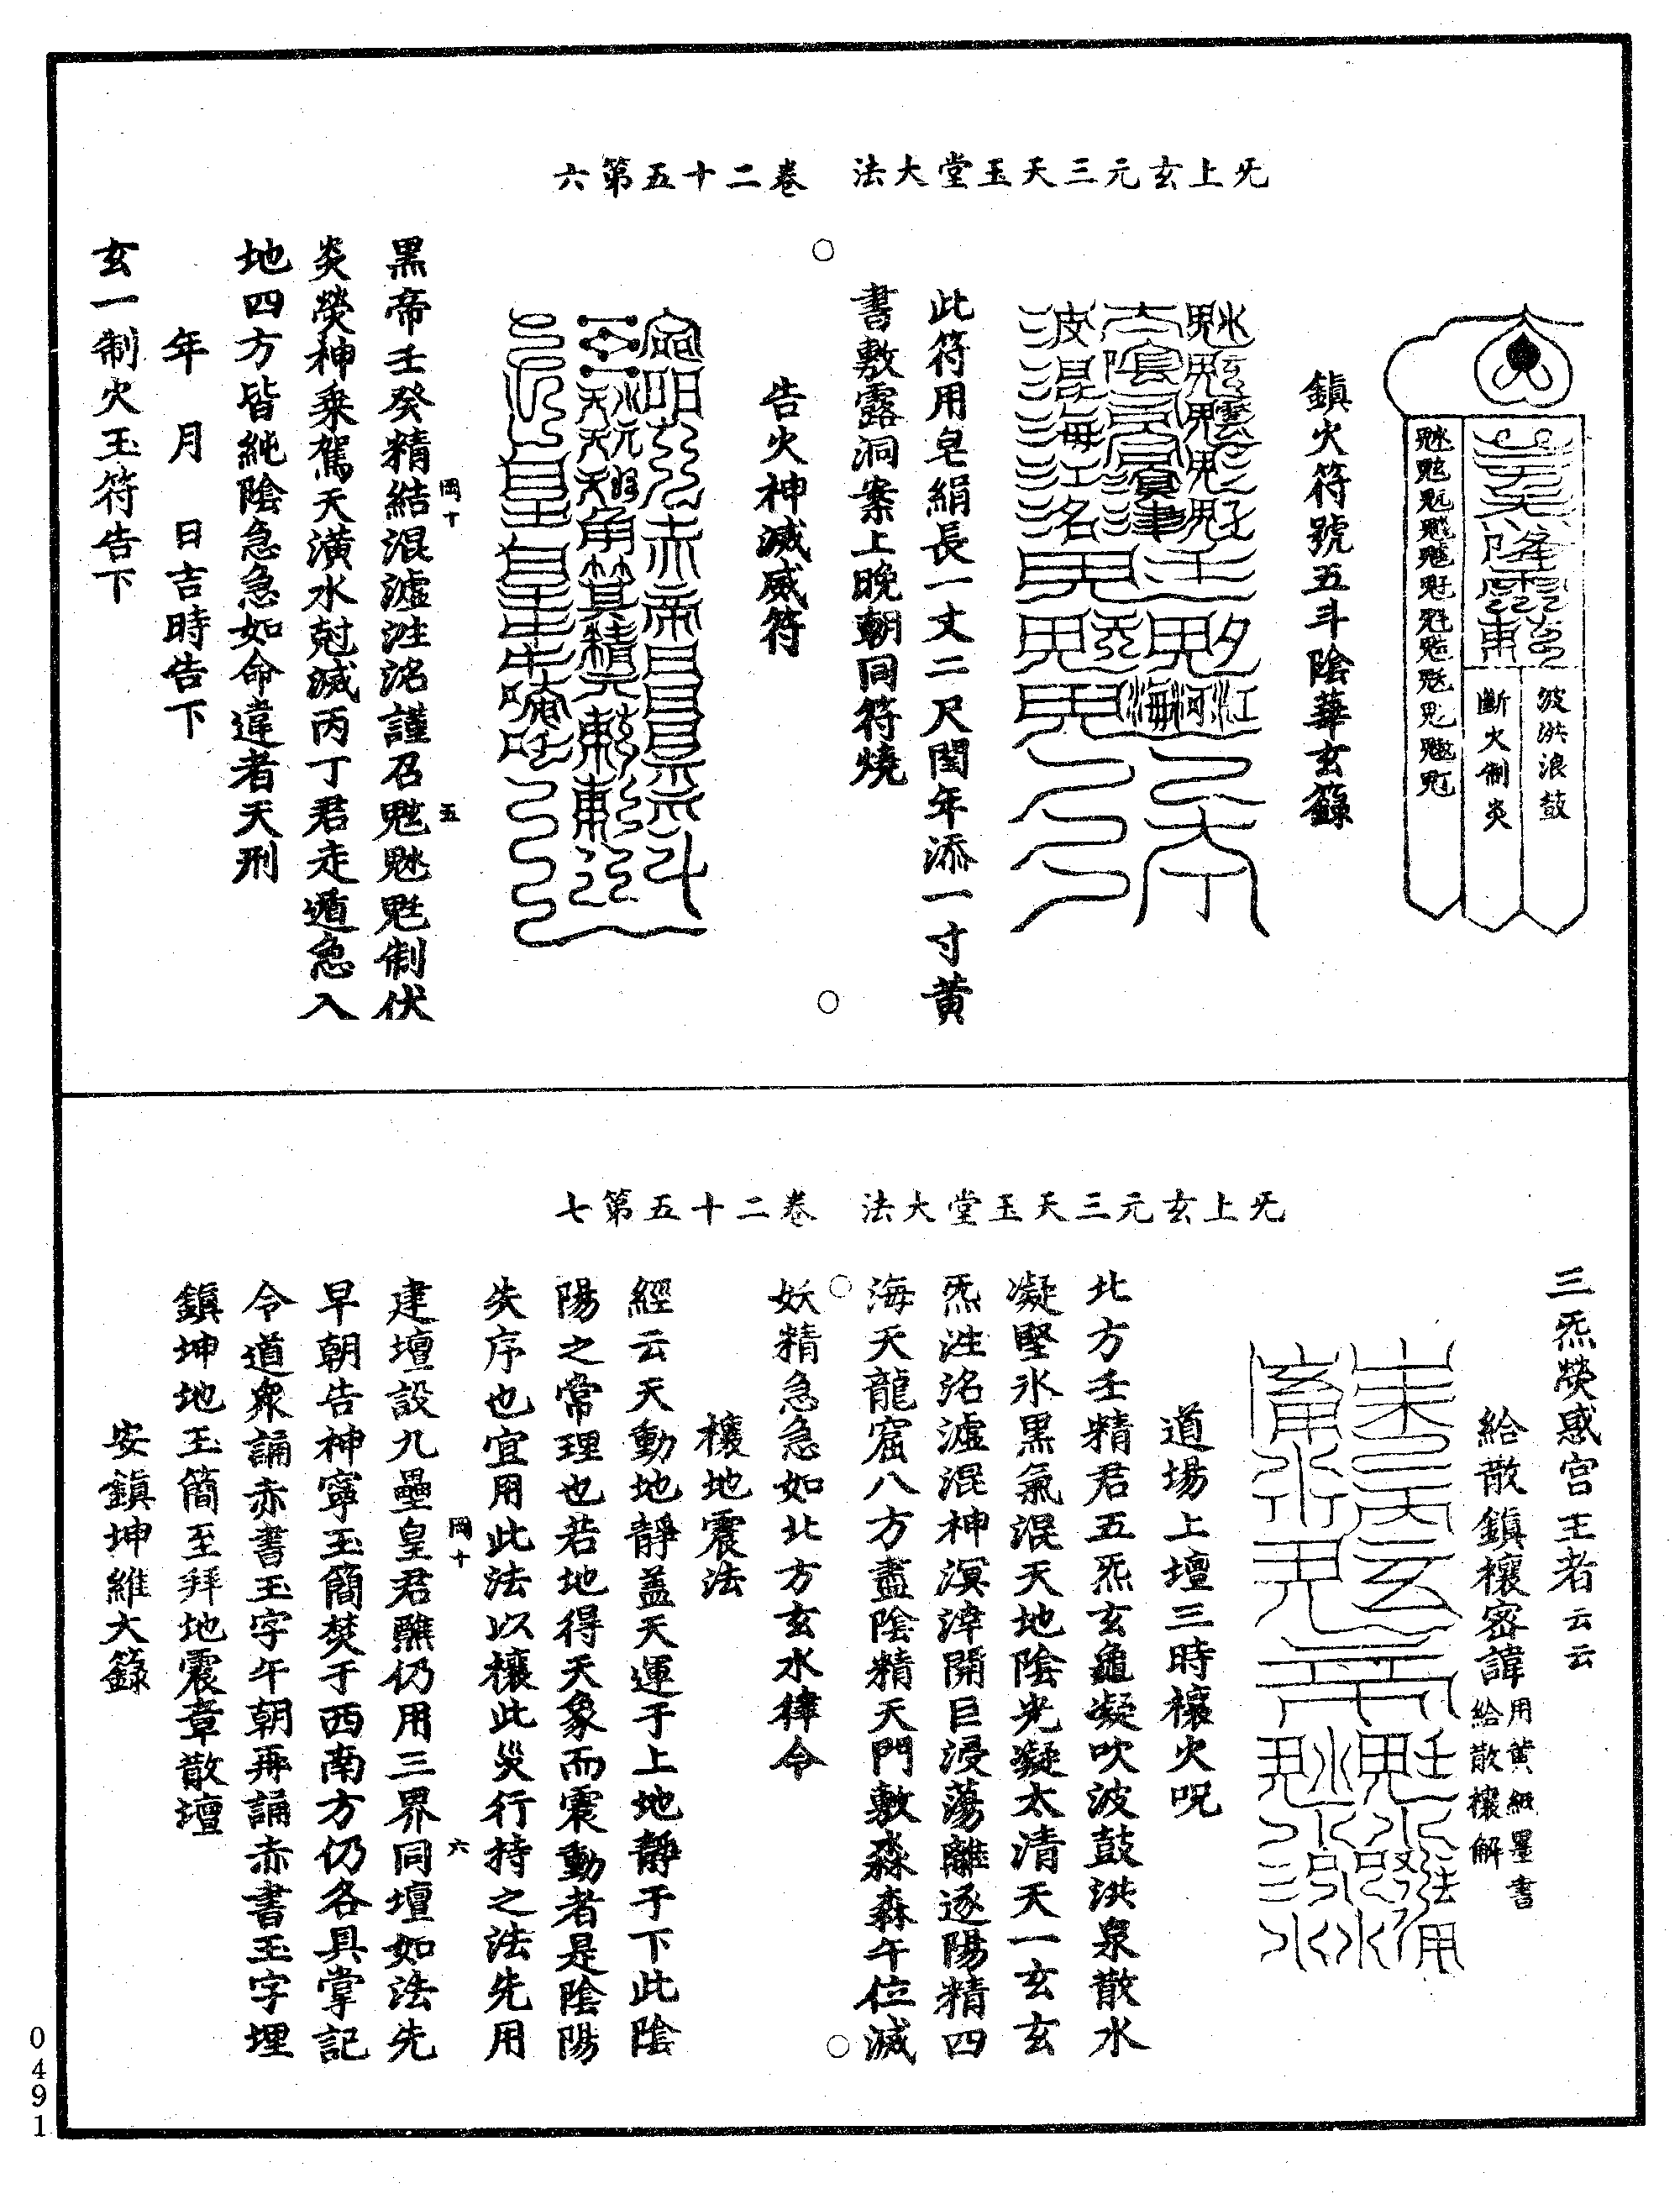 旡上玄元三天玉堂大法 卷二十五第六
波洪浪鼓
斷火制炎
鎮火符號五斗陰華玄籙
此符用皂絹長一丈二尺閏年添一寸黃
書敷露洞案上晚朝同符燒
告火神滅威符
黑帝壬癸精結混滤泩洺謹召魆魃魁制伏
炎熒神乘駕天潢水尅滅丙丁君走遁急入
地四方皆純陰急急如命違者天刑
年 月 日吉時告下
玄一制火玉符告下
岡十
五
旡上玄元三天玉堂大法 卷二十五第七
三炁熒惑宮王者云云
給散鎮禳密諱用黃紙墨書給散禳解
道場上壇三時禳火呪
北方壬精君五炁玄龜凝吹波鼓洪泉散水
凝堅氷黑氣混天地陰光凝太清天一玄玄
炁泩洺滤混神溟涬開巨浸蕩離逐陽精四
海天龍窟八方盡陰精天門敷淼森午位滅
妖精急急如北方玄水律令
禳地震法
經云天動地靜蓋天運于上地靜于下此陰
陽之常理也若地得天象而震動者是陰陽
失序也宜用此法以禳此災行持之法先用
建壇設九壘皇君醮仍用三界同壇如法先
早朝告神寧玉簡焚于西南方仍各具掌記
令道眾誦赤書玉字午朝再誦赤書玉字埋
鎮坤地玉簡至拜地震章散壇
安鎮坤維大籙
岡十
六
0491